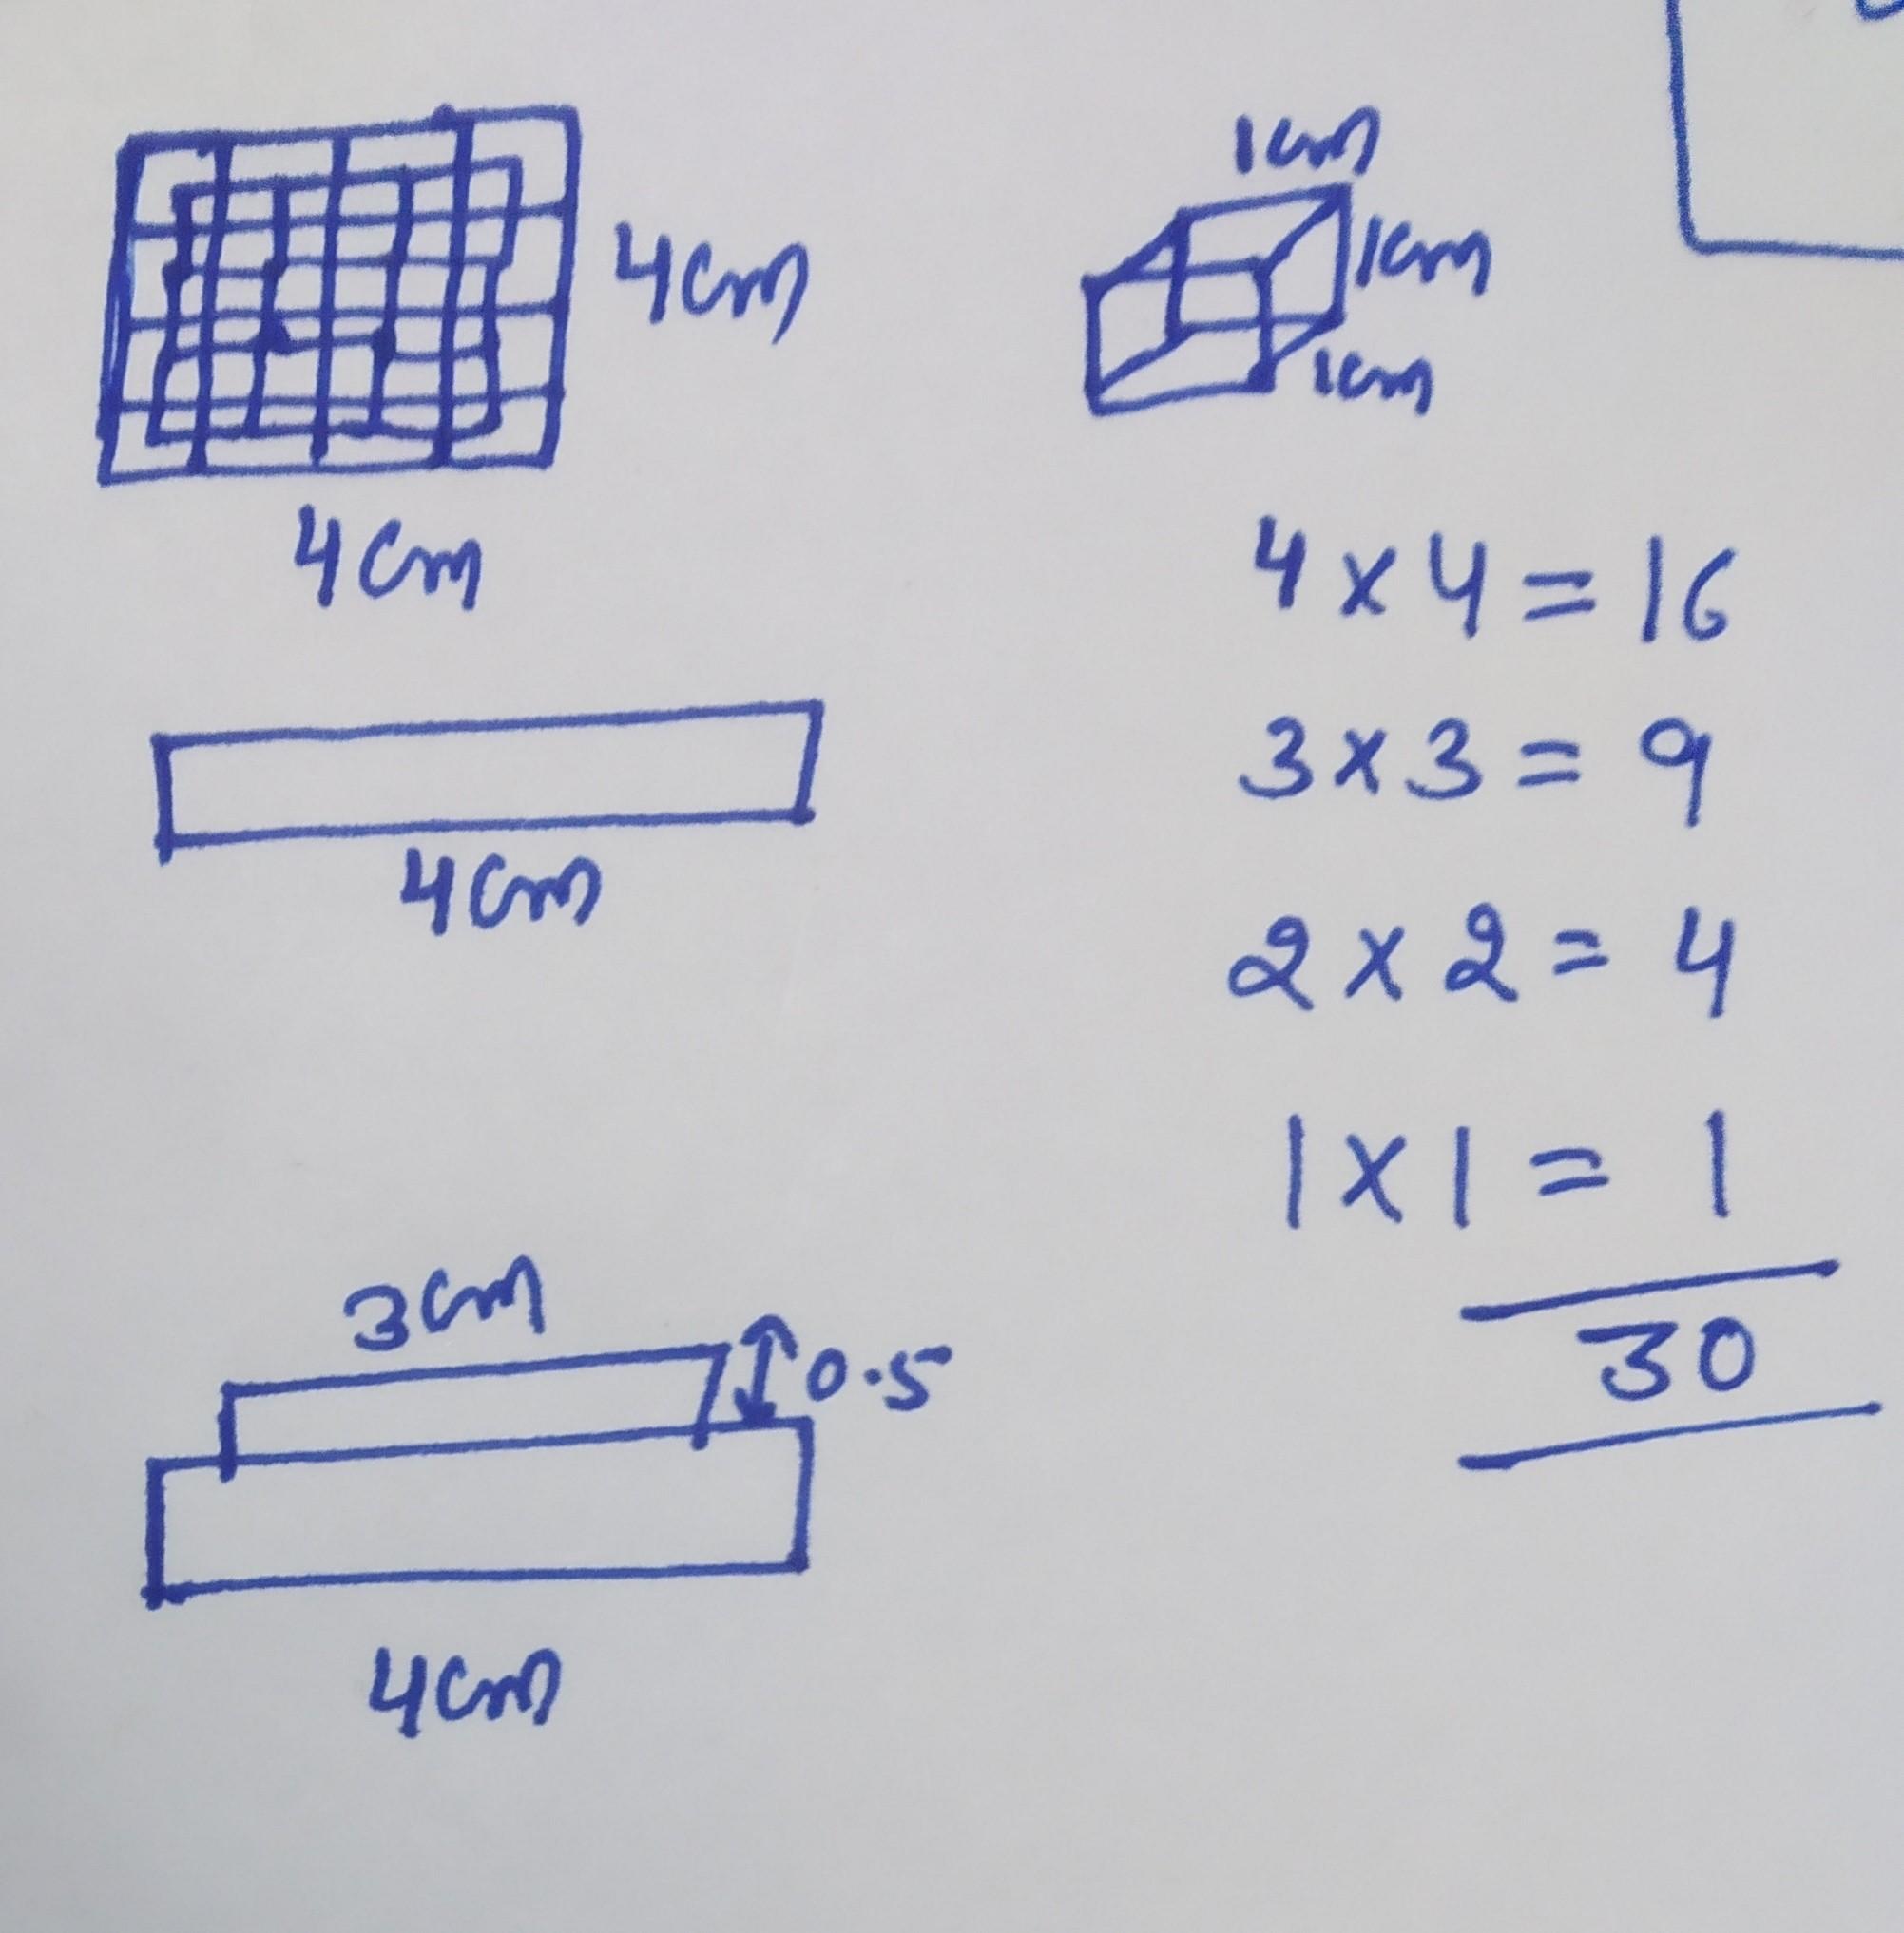 4cm
4cm
4cm
3cm
0.5
4cm
1cm
1cm
1cm
4 x 4 = 16
3 x 3 = 9
2 x 2 = 4
1 x 1 = 1
30